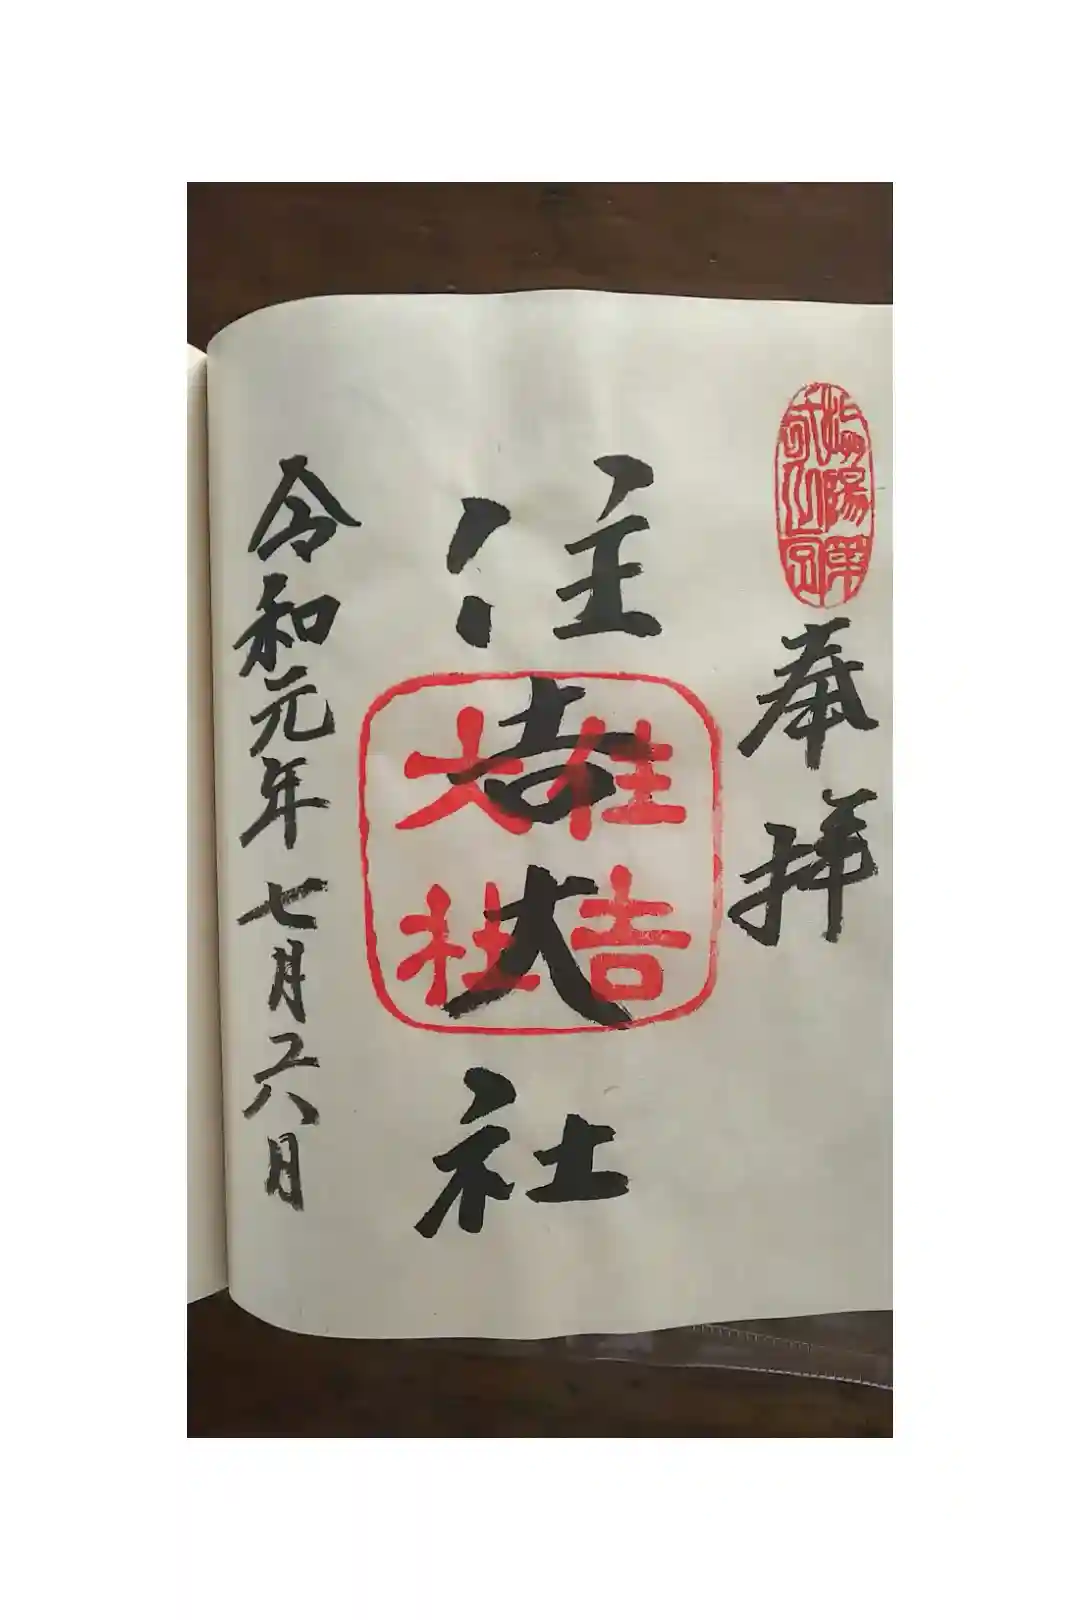 奉拝
住吉大社
住吉
大社
令和元年七月二八日